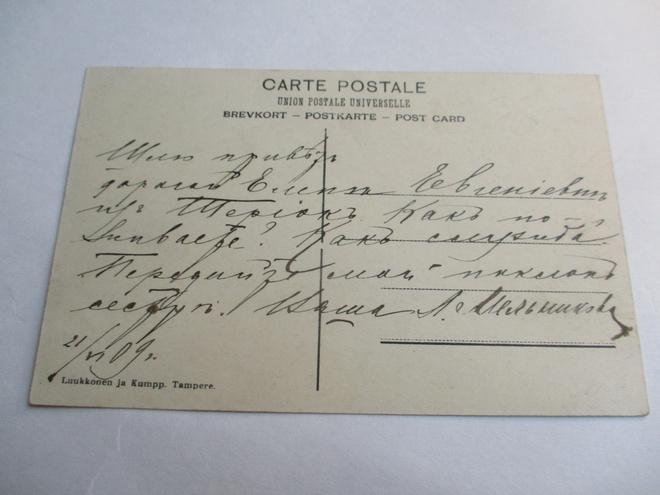 CARTE POSTALE
UNION POSTALE UNIVERSELLE
BREVKORT – POSTKARTE – POST CARD
Шлю привѣтъ
дорогой Еленѣ Евгеніевнѣ
изъ Теріокъ. Какъ по-
живаете? Какъ служба?
Передайте мой поклонъ
сестрѣ. Ваша Л. Мельникова
21/VI 09 г.
Luukkonen ja Kumpp. Tampere.